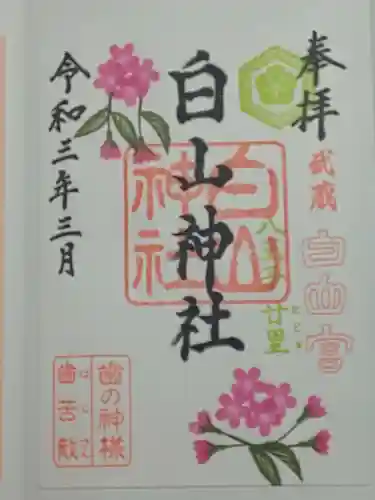 奉拝
武蔵
白山宮
八王子 廿里
とどり
白山神社
白山
神社
令和三年三月
歯の神様